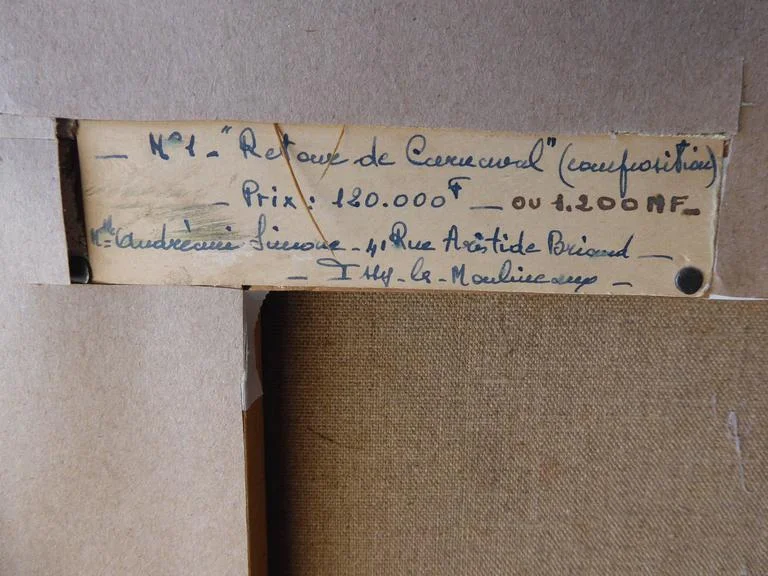 — N° 1 - "Retour de Carnaval" (composition)
— Prix : 120.000F — OU 1.200 NF —
Simone - 41 Rue Aristide Briand —
— Issy-les-Moulineaux —